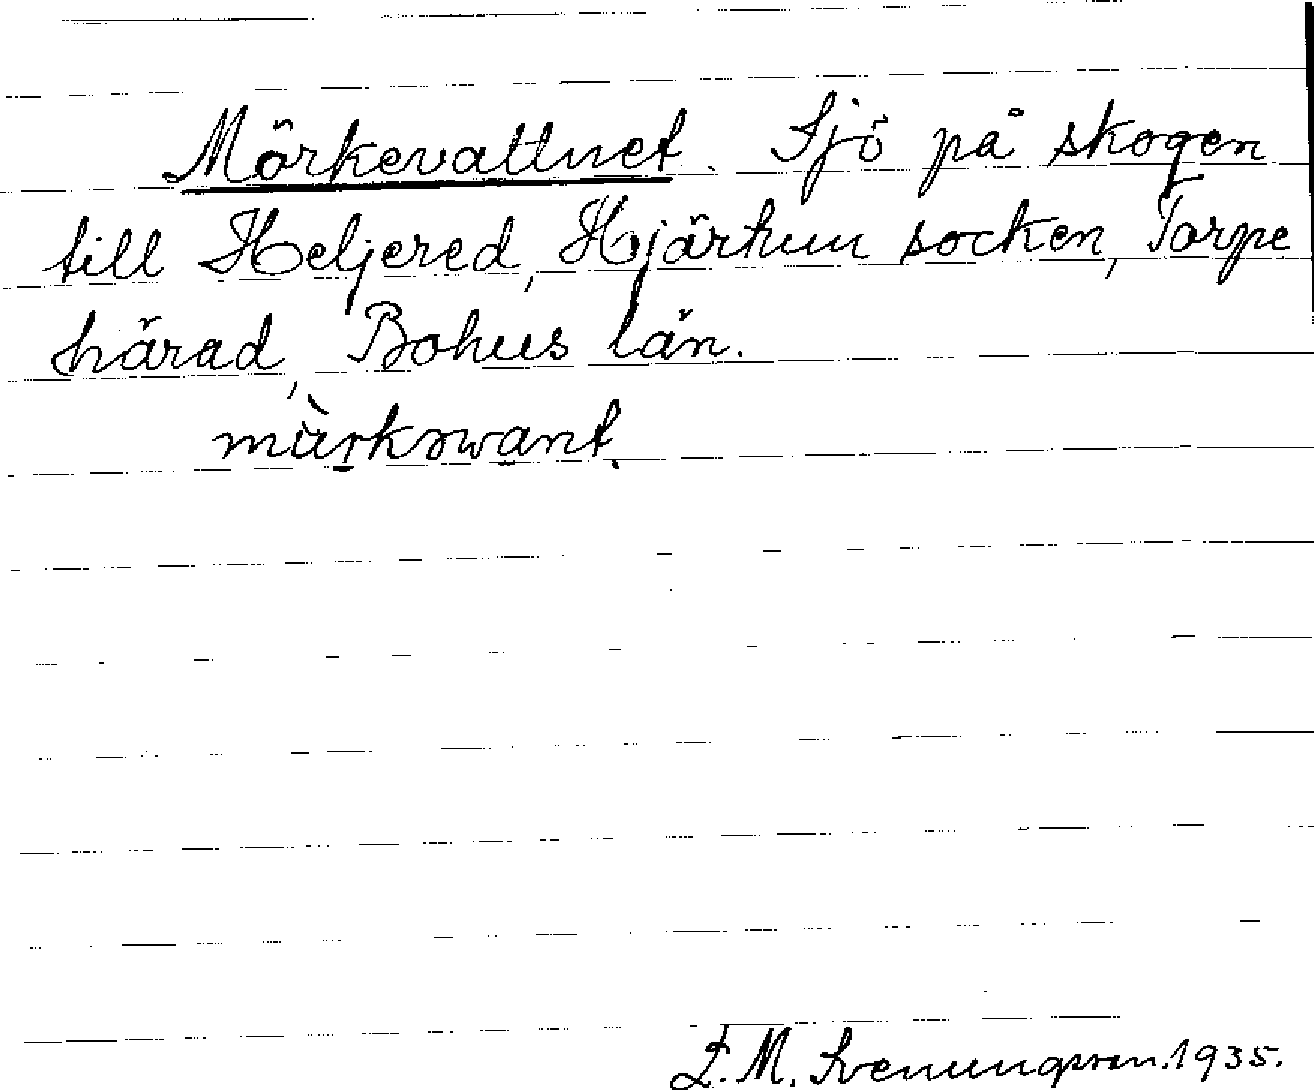 Mörkevattnet. Sjö på skogen
till Heljered, Hjärtum socken, Torpe
härad, Bohus län.
L. M. Svenungsson. 1935.